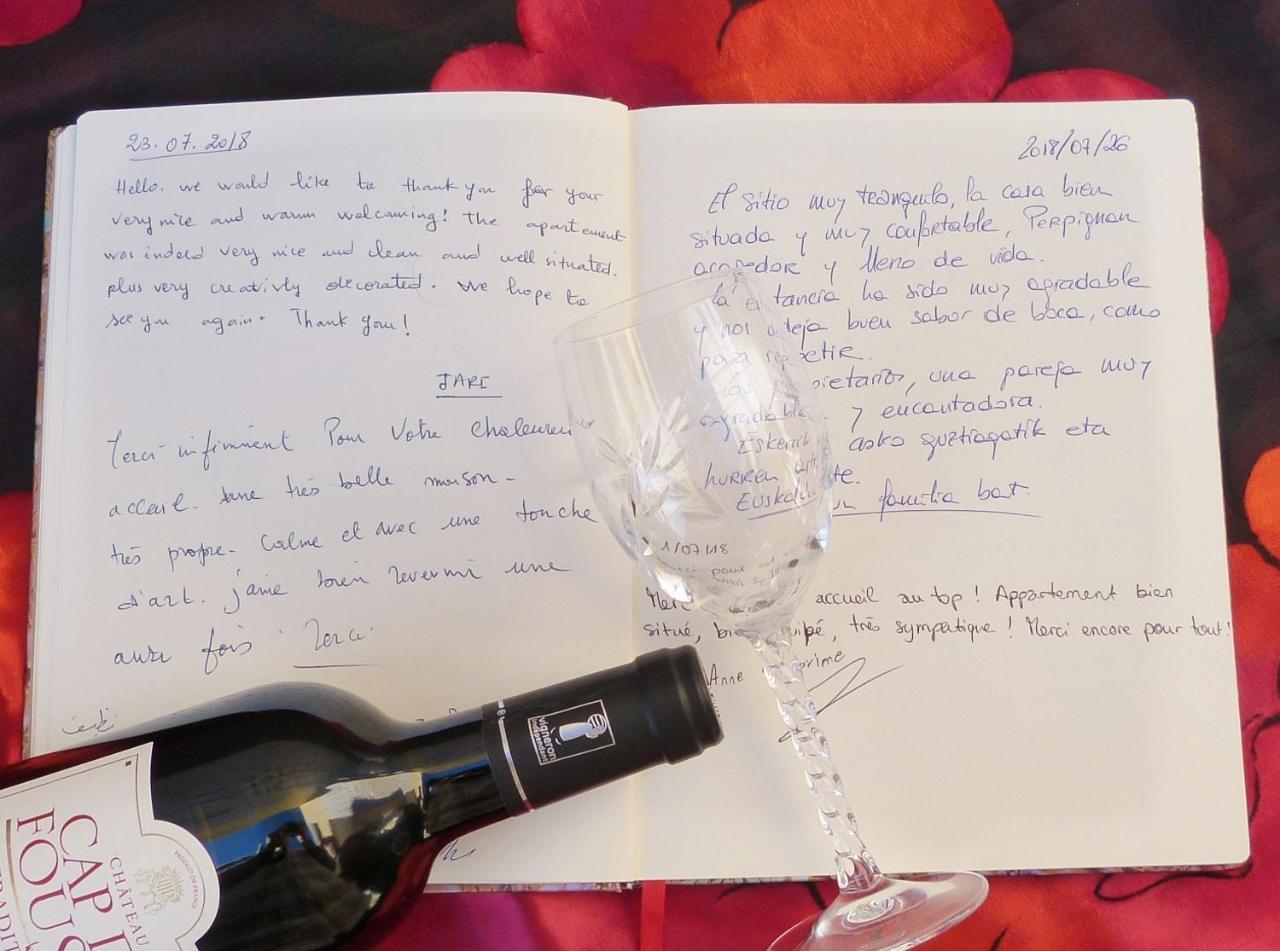 23.07.2018
Hello. we would like to thank you for your
very nice and warm welcoming! The apartement
was indeed very nice and clean and well situated.
plus very creativly décorated. We hope to
see you again. Thank you!
JARI
Merci infiniment Pour Votre chaleureux
accueil. une très belle maison -
très propre. Calme et avec une touche
d'art. j'aime bien revenir une
autre fois. Merci
2018/07/26
El sitio muy tranquilo, la casa bien
situada y muy confortable, Perpignan
acogedor y lleno de vida.
La estancia ha sido muy agradable
y nos deja buen sabor de boca, como
para repetir.
Los propietarios, una pareja muy
agradable y encantadora.
Eskerrik asko guztiagatik eta
hurren arte.
Euskal familia bat.
1/07/18
Merci accueil au top! Appartement bien
situé, bien équipé, très sympatique! Merci encore pour tout!
Anne
vigneron
indépendant
CHÂTEAU
CAP
FOUS
TRADIT
PRODUCT DE FRANCE